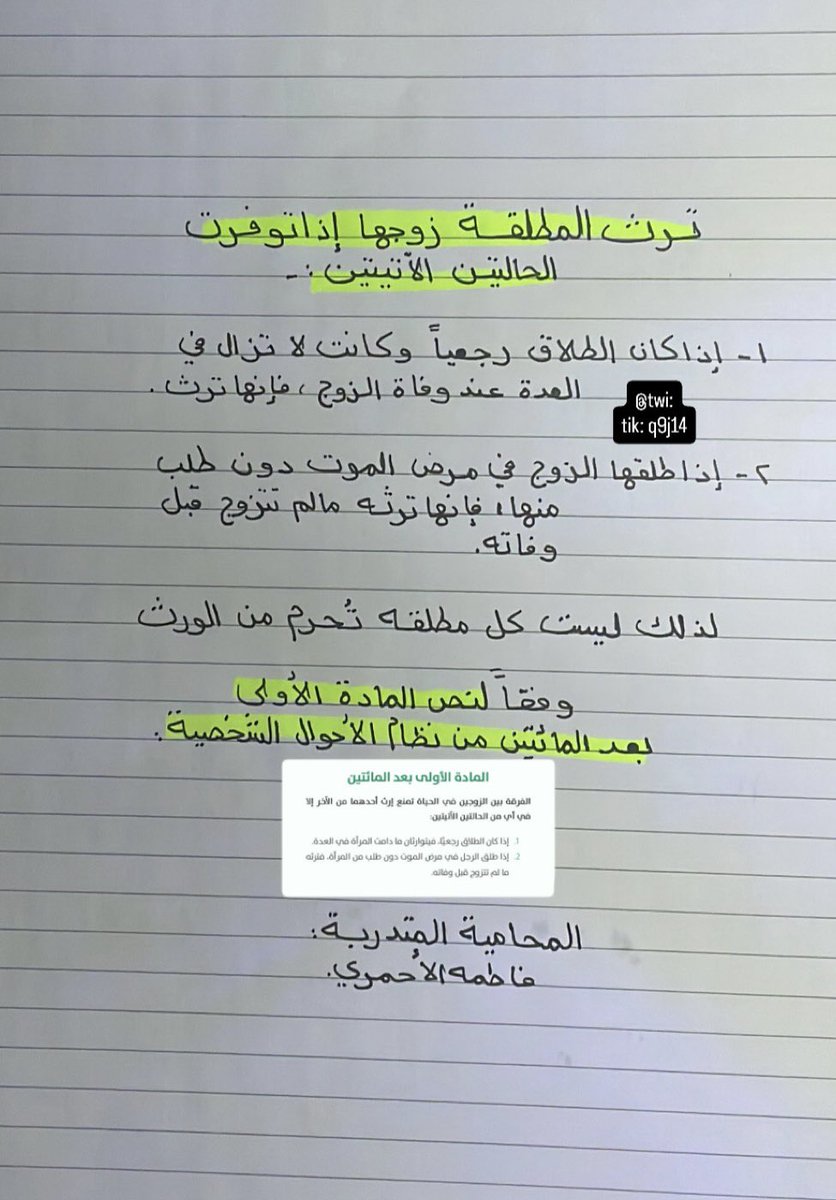 ترث المطلقة زوجها إذا توفرت
الحالتين الآتيتين :-
١- إذا كان الطلاق رجعياً وكانت لا تزال في
العدة عند وفاة الزوج ، فإنها ترث .
@twi:
tik: q9j14
٢- إذا طلقها الزوج في مرض الموت دون طلب
منها، فإنها ترثه مالم تتزوج قبل
وفاته.
لذلك ليست كل مطلقه تُحرم من الورث
وفقاً لنص المادة الأولى
بعد المائتين من نظام الأحوال الشخصية .
المادة الأولى بعد المائتين
الفرقة بين الزوجين في الحياة تمنع إرث أحدهما من الآخر إلا
في أي من الحالتين الآتيتين:
1. إذا كان الطلاق رجعيًا، فيتوارثان ما دامت المرأة في العدة.
2. إذا طلق الرجل في مرض الموت دون طلب من المرأة، فترثه
ما لم تتزوج قبل وفاته.
المحامية المتدربة :
فاطمه الأحمري.